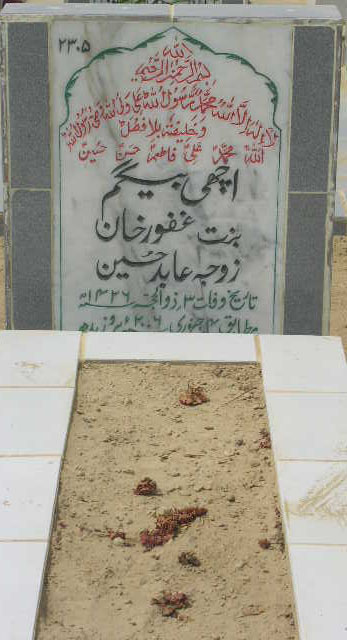 ۲۳۰۵
اللہ
بسم الله الرحمن الرحيم
لا اله الا الله محمد رسول الله علی ولی الله وصی رسول الله
وخليفته بلا فصل
اللہ محمدؐ علیؑ فاطمہؑ حسنؑ حسینؑ
اچھی بیگم
بنت غفور خان
زوجہ عابد حسین
تاریخ وفات ۳؍ ذوالحجہ ۱۴۲۶ھ
مطابق ۴ جنوری ۲۰۰۶ء بروز بدھ